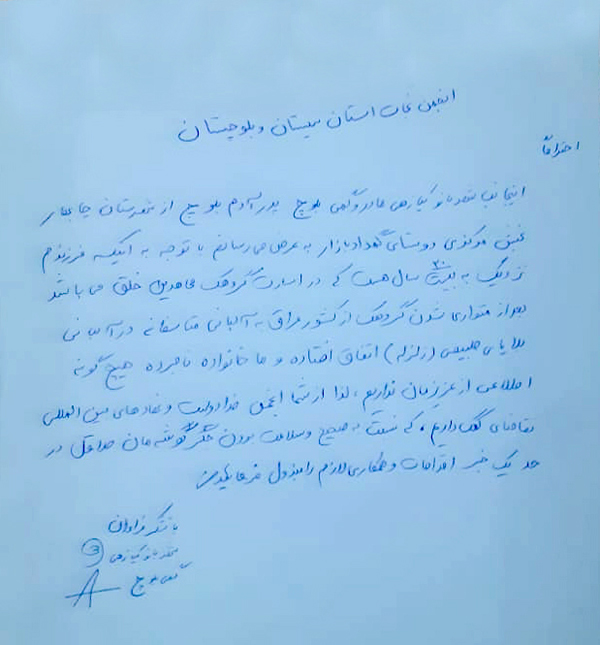 انجمن نجات استان سیستان و بلوچستان
احتراماً
اینجانب ماه بانو کیازهی مادر و گهی بلوچ پدر آدم بلوچ از شهرستان چابهار
بخش مرکزی روستای گهداد بازار به عرض می رسانم با توجه به اینکه فرزندم
نزدیک به بیست ۲۰ سال هست که در اسارت گروهک مجاهدین خلق می باشد
بعد از متواری شدن گروهک از کشور عراق به آلبانی متاسفانه در آلبانی
بلایای طبیعی (زلزله) اتفاق افتاده و ما خانواده نامبرده هیچ گونه
اطلاعی از عزیزمان نداریم، لذا از شما انجمن خدادوست و نهادهای بین المللی
تقاضای کمک داریم، که نسبت به صحیح و سلامت بودن جگرگوشه مان حداقل در
حد یک خبر اقدامات و همکاری لازم را مبذول فرمایید
با تشکر فراوان
ماه بانو کیازهی
گهی بلوچ